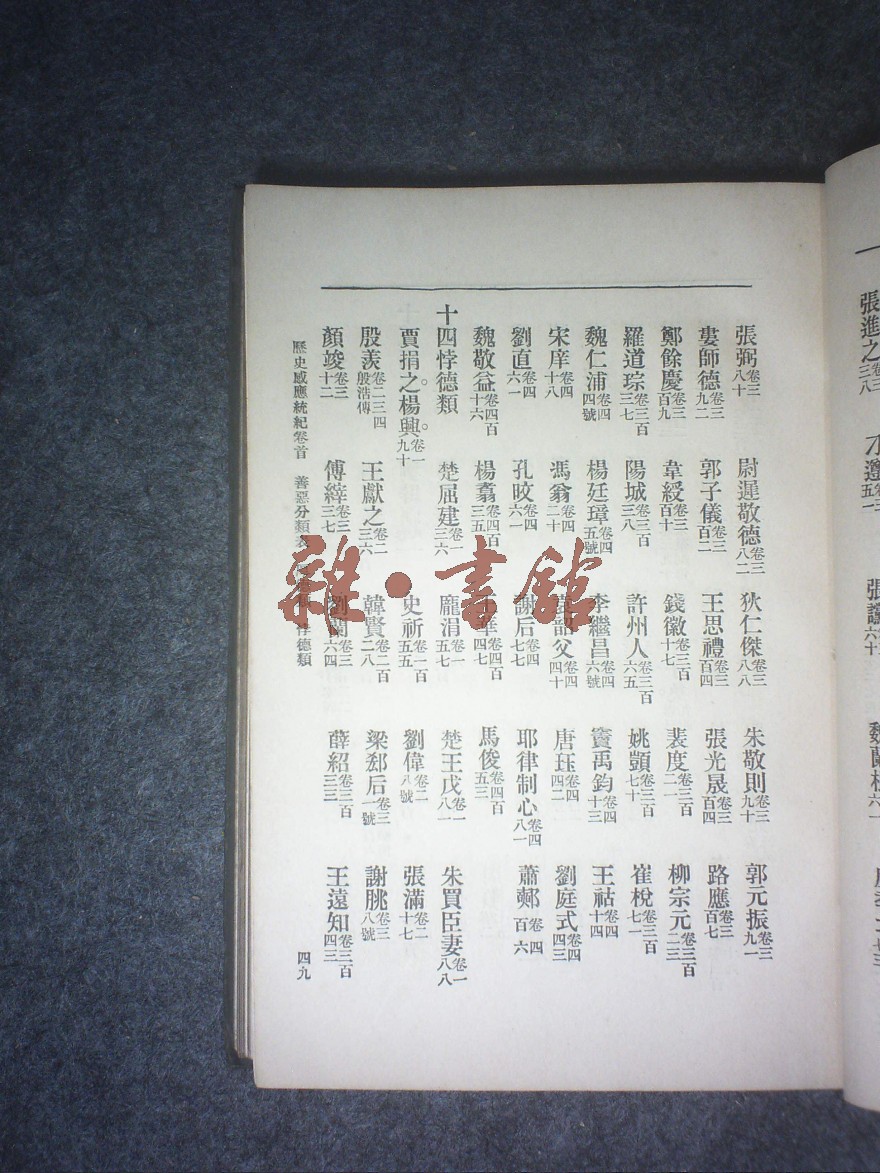 張弼卷三八十 尉遲敬德卷三八二 狄仁傑卷三八八 朱敬則卷三九十 郭元振卷三九一
婁師德卷三九二 郭子儀卷三百二 王思禮卷三百四 張光晟卷三百四 路應卷三百七
鄭餘慶卷三百九 韋綬卷三百十 錢徽卷三百十七 裴度卷三百二一 柳宗元卷三百二三
羅道琮卷三百三七 陽城卷三百三八 許州人卷三百六五 姚顗卷三百七十 崔梲卷三百七一
魏仁浦卷四四號 楊廷璋卷四五號 李繼昌卷四六號 竇禹鈞卷四十三 王祜卷四十四
宋庠卷四十八 馮翁卷四二十 韶父卷四四十 唐珏卷四四二 劉庭式卷四四三
劉直卷四六一 孔晈卷四六一 謝后卷四七七 耶律制心卷四八一 蕭鄴卷四百六
魏敬益卷四百十六 楊翥卷四百三五 華卷四百四七 馬俊卷四百五三
十四悖德類 楚屈建卷一三六 龐涓卷一五七 楚王戊卷一八一 朱買臣妻卷一八八
賈捐之。楊興。卷一九十 史祈卷一百五五 劉偉卷二八號 張滿卷二十七
殷羨卷二三四殷浩傳 王獻之卷二三六 韓賢卷二百二八 梁郄后卷三一號 謝朓卷三八號
顏竣卷三十二 傅縡卷三三七 劉蘭卷三六四 薛紹卷三百三三 王遠知卷三百四三
歷史感應統紀卷首 善惡分類表 悖德類 四九
張進之卷三三八
雜·書館